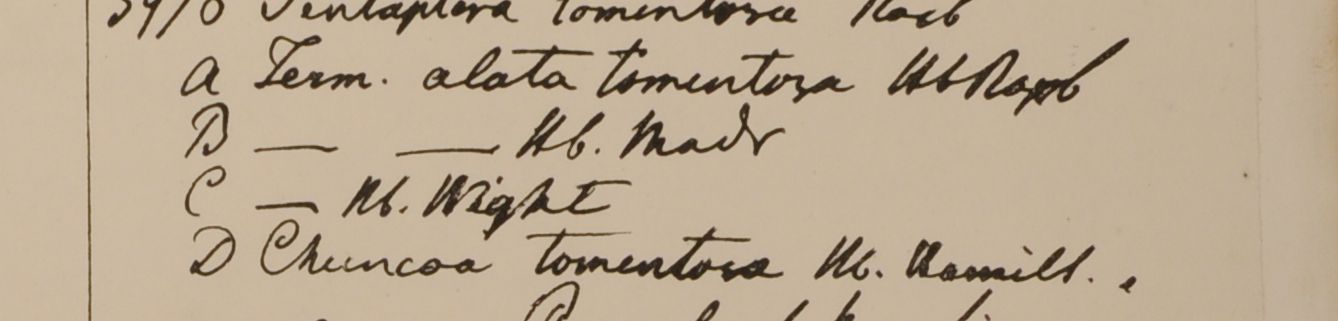 Pentaptera tomentosa Roxb
A Term. alata tomentosa Hb Roxb
B — — Hb. Madr
C — Hb. Wight
D Chuncoa tomentosa Hb. Hamilt.